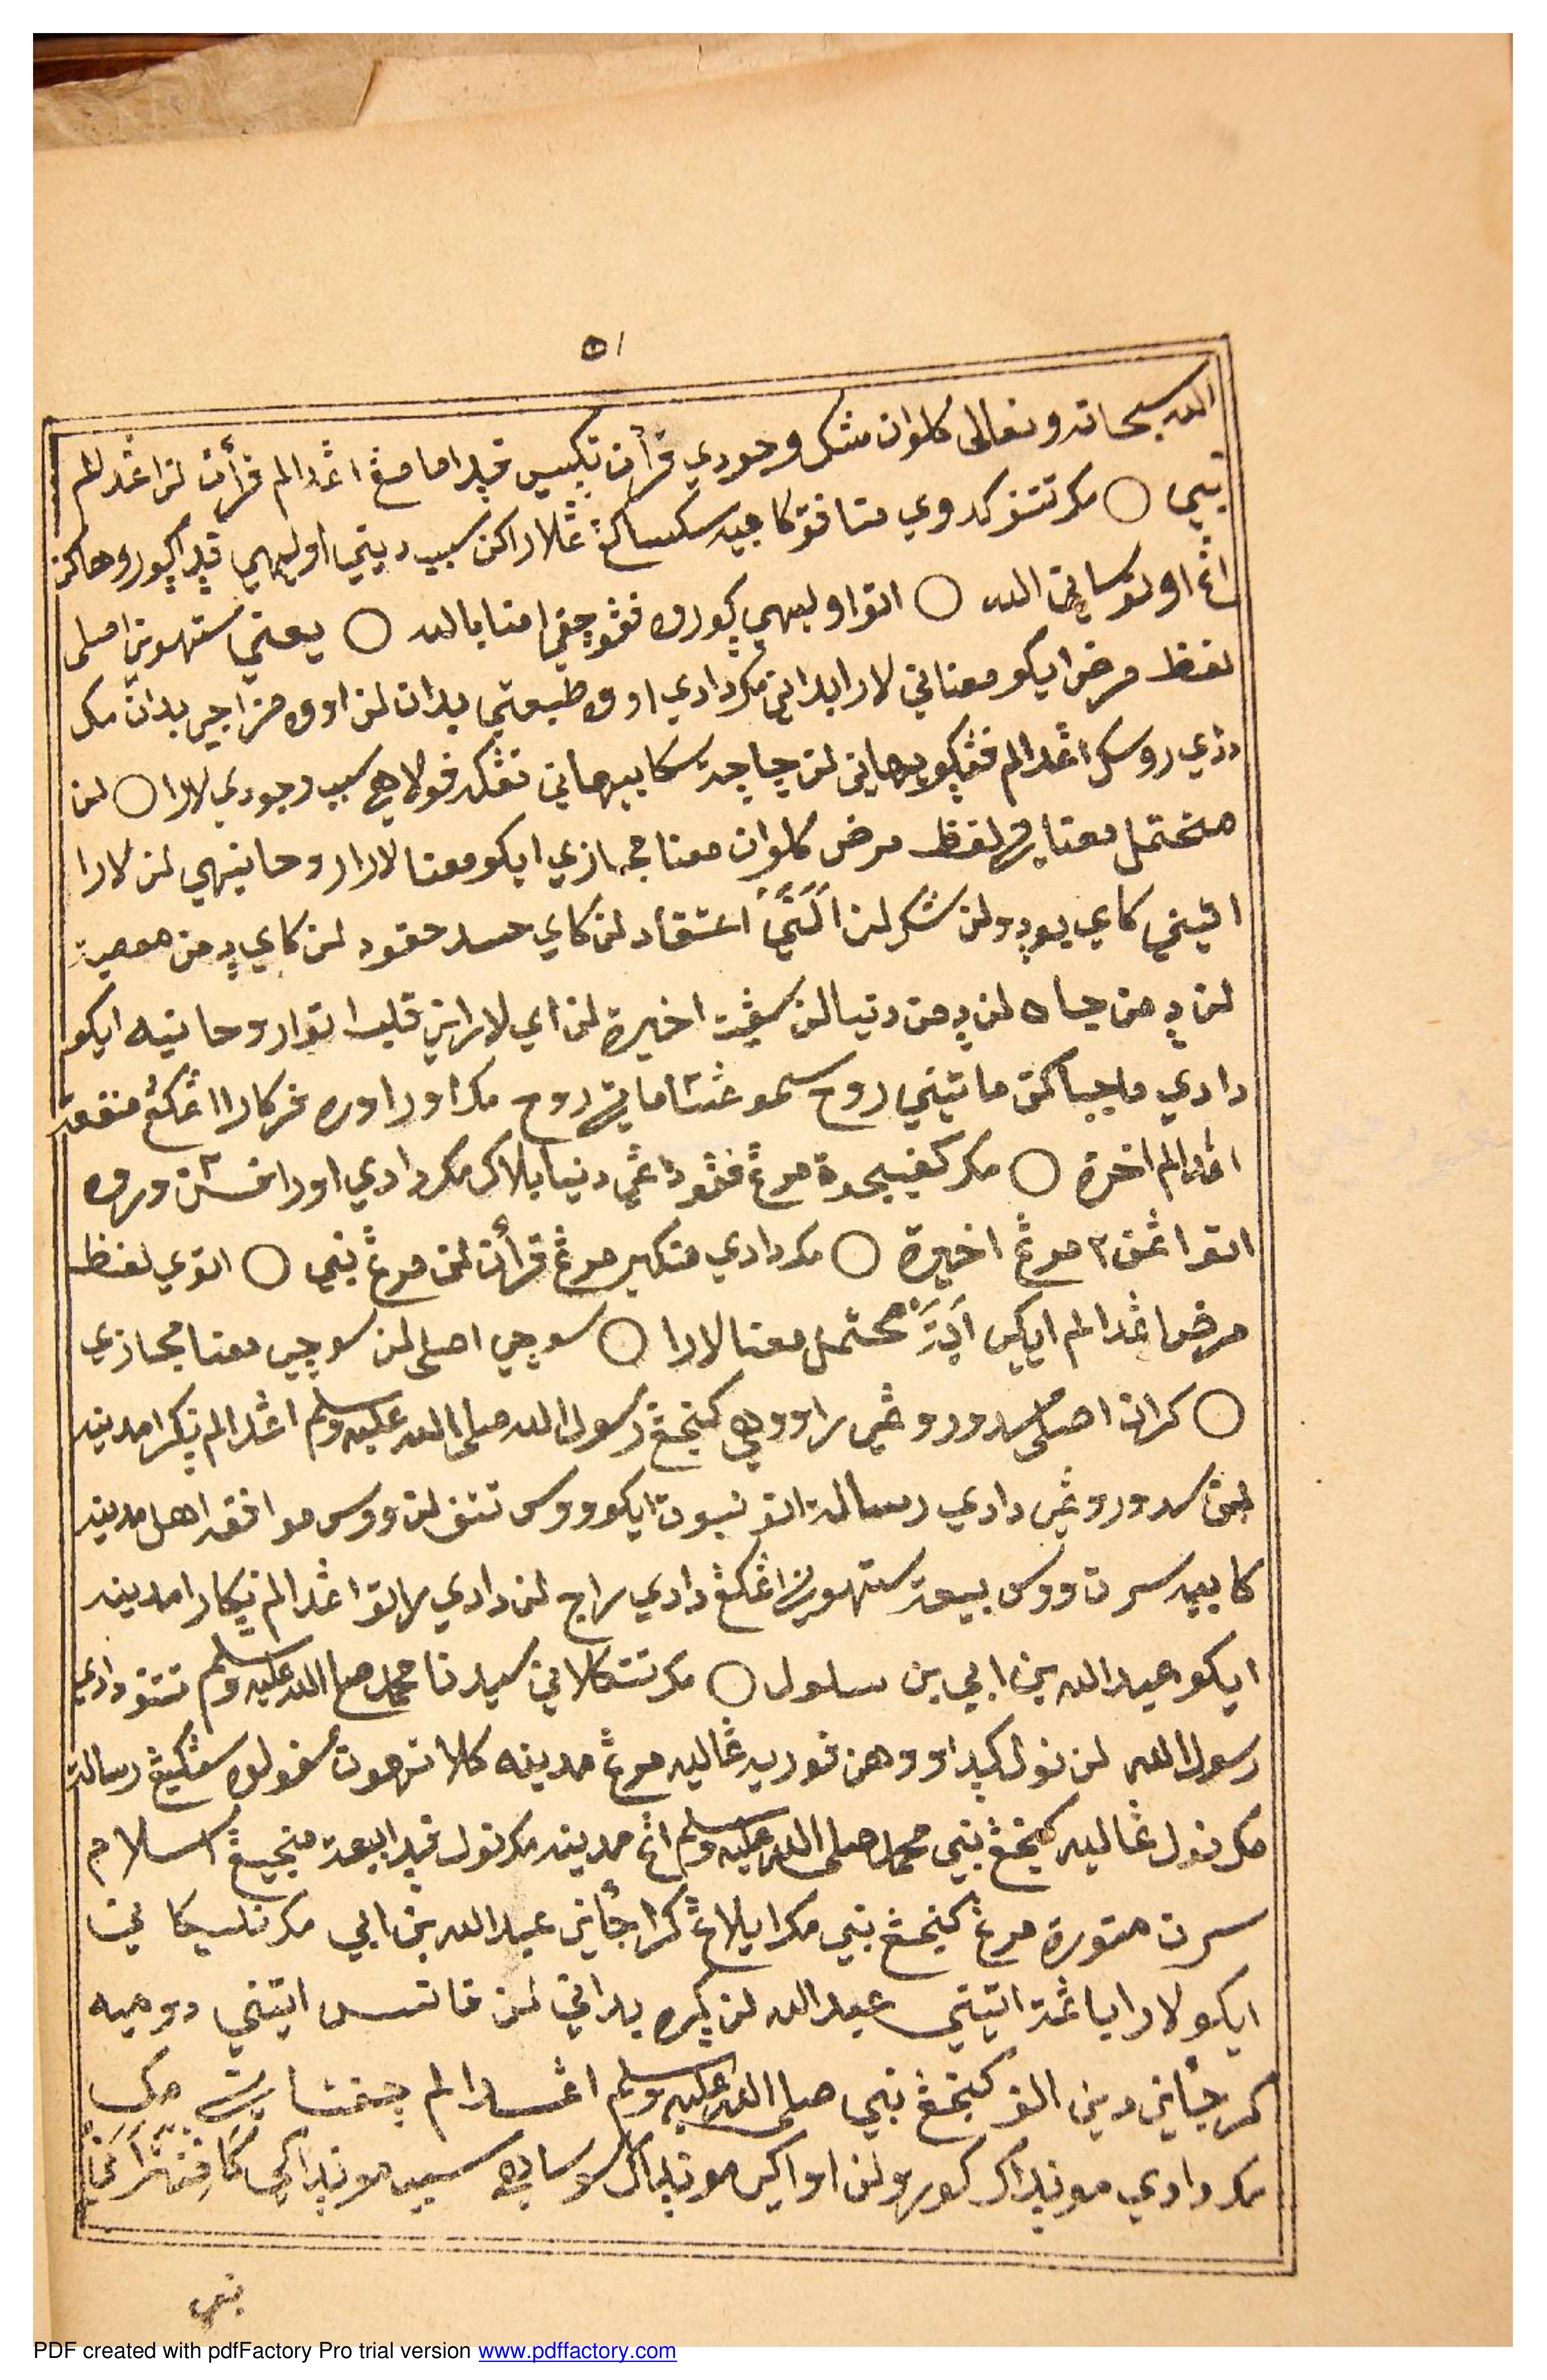 ٥١
الله سبحانه وتعالى كلوان مڠك وجودي قرأن تكيس ڤدا مامڠ اڠدالم قرأن لن اڠدالم
نبي ○ مك تتف كدوي منافق كابيه سكسا كڠ ڠلاراكن سبب ديني اوليهي ڤدا ڮوروهاكن
اڠ اوتوساني الله ○ اتوا وليهي ڮوروه ڤڠوچڤي امنا بالله ○ يعني ستهوني اصلي
لفظ مرض ايكو معناني لارا بداني مك دادي اووه طبيعتي بدان لن اووه مزاجي بدان مك
دادي روسك اڠدالم ڤڠڮويهاني لن چاچة سكابيهاني تڠكه ڤولاهي سبب وجودي لارا ○ لن
محتمل معناني لفظ مرض كلوان معنا مجازي ايكو معنا لارا روحانيهي لن لارا
اتيني كاي بودو لن شك لن اعتقاد لن كاي حسد حقود لن كاي دمن معصية
لن دمن جاه لن دمن دنيا لن سڠيت اخيرة لن اي لاراني قلب اتوا روحانيه ايكو
دادي ماجباكن ماتيني روح سموڠسا ماتي روح مك اورا اوره ڤركارا اڠكڠ منفعة
اڠدالم اخرة ○ مك كڤيچوة مرڠ ڤڠوداڠي دنيا بلاك مك دادي اورا ڤيسن وروه
اتوا اڠن٢ مرڠ اخيرة ○ مك دادي منكير مرڠ قرأن لن مرڠ نبي ○ اتوي لفظ
مرض اڠدالم ايكي اية محتمل معنا لارا ○ سوجي اصلي لن سوجي معنا مجازي
○ كرانا اصلي سدوروڠي راووهي كنجڠ رسول الله صلى الله عليه وسلم اڠدالم نڮرا مدينه
لن سدوروڠي دادي رسالة اتوا نبوة ايكو ووس تتف لن ووس موافقه اهل مدينه
كابيه سرت ووس بيعة ستهوني اڠكڠ دادي راج لن دادي راتو اڠدالم نڮارا مدينه
ايكو عبد الله بن ابي بن سلول ○ مك تتكالاني سيدنا محمد صلى الله عليه وسلم تتف دادي
رسول الله لن نولي كدا ووهن ڤوريه ڠاليه مرڠ مدينه كلا نرهون سڤولوه سڠكيڠ رسالة
مك نولي ڠاليه كنجڠ نبي محمد صلى الله عليه وسلم اڠ مدينه مك نولي ڤدا بيعة منجيڠ اسلام
سرت متوره مرڠ كنجڠ نبي مك ايلاڠ كراجأني عبد الله بن ابي مك نليكاني
ايكو لارا باڠت اتيني عبد الله لن ڮره بداني لن ڤانس اتيني دوميه
كرجأني ديني الف كنجڠ نبي صلى الله عليه وسلم اڠدالم مك
مك دادي مونداك كورو لن اواكي مونداك سوساهي سبب مونداكي كافرأني
نبي
PDF created with pdfFactory Pro trial version www.pdffactory.com